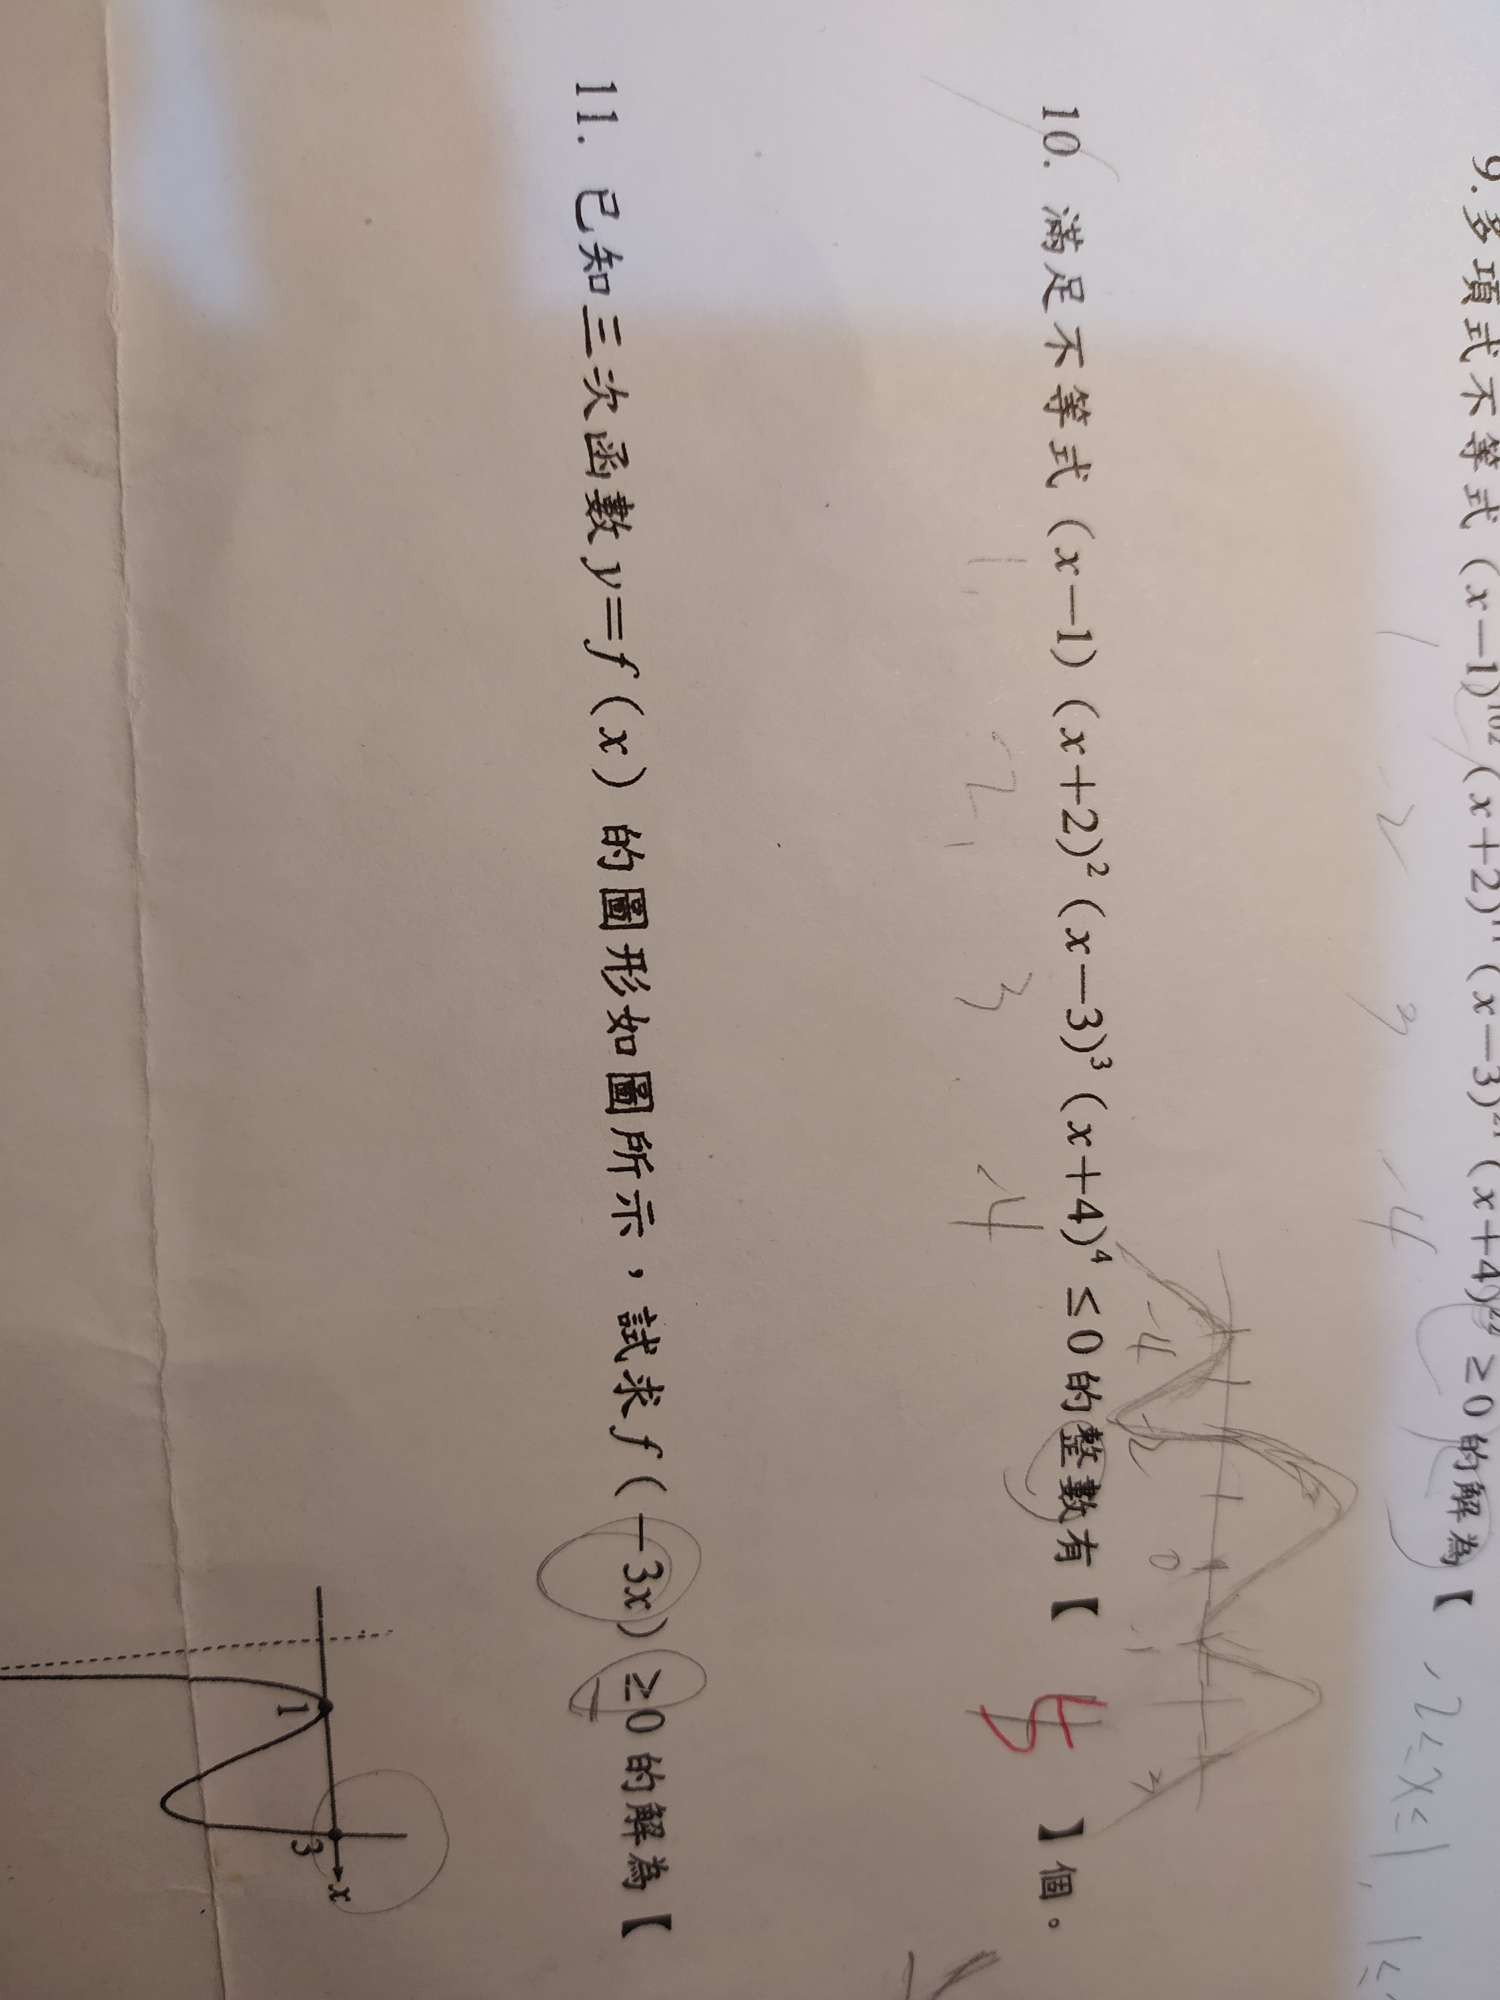 9. 多項式不等式 (x-1)¹⁰² (x+2)¹¹ (x-3)²¹ (x+4) ≥0 的解為【
1 -2 3 -4 -2≤x≤1, 1≤
10. 滿足不等式 (x-1) (x+2)² (x-3)³ (x+4)⁴ ≤0 的整數有【 5 】個。
1, -2, 3 -4
-4 -2 0 1 3
11. 已知三次函數 y=f (x) 的圖形如圖所示,試求 f (-3x) ≥0 的解為【
1 3 x